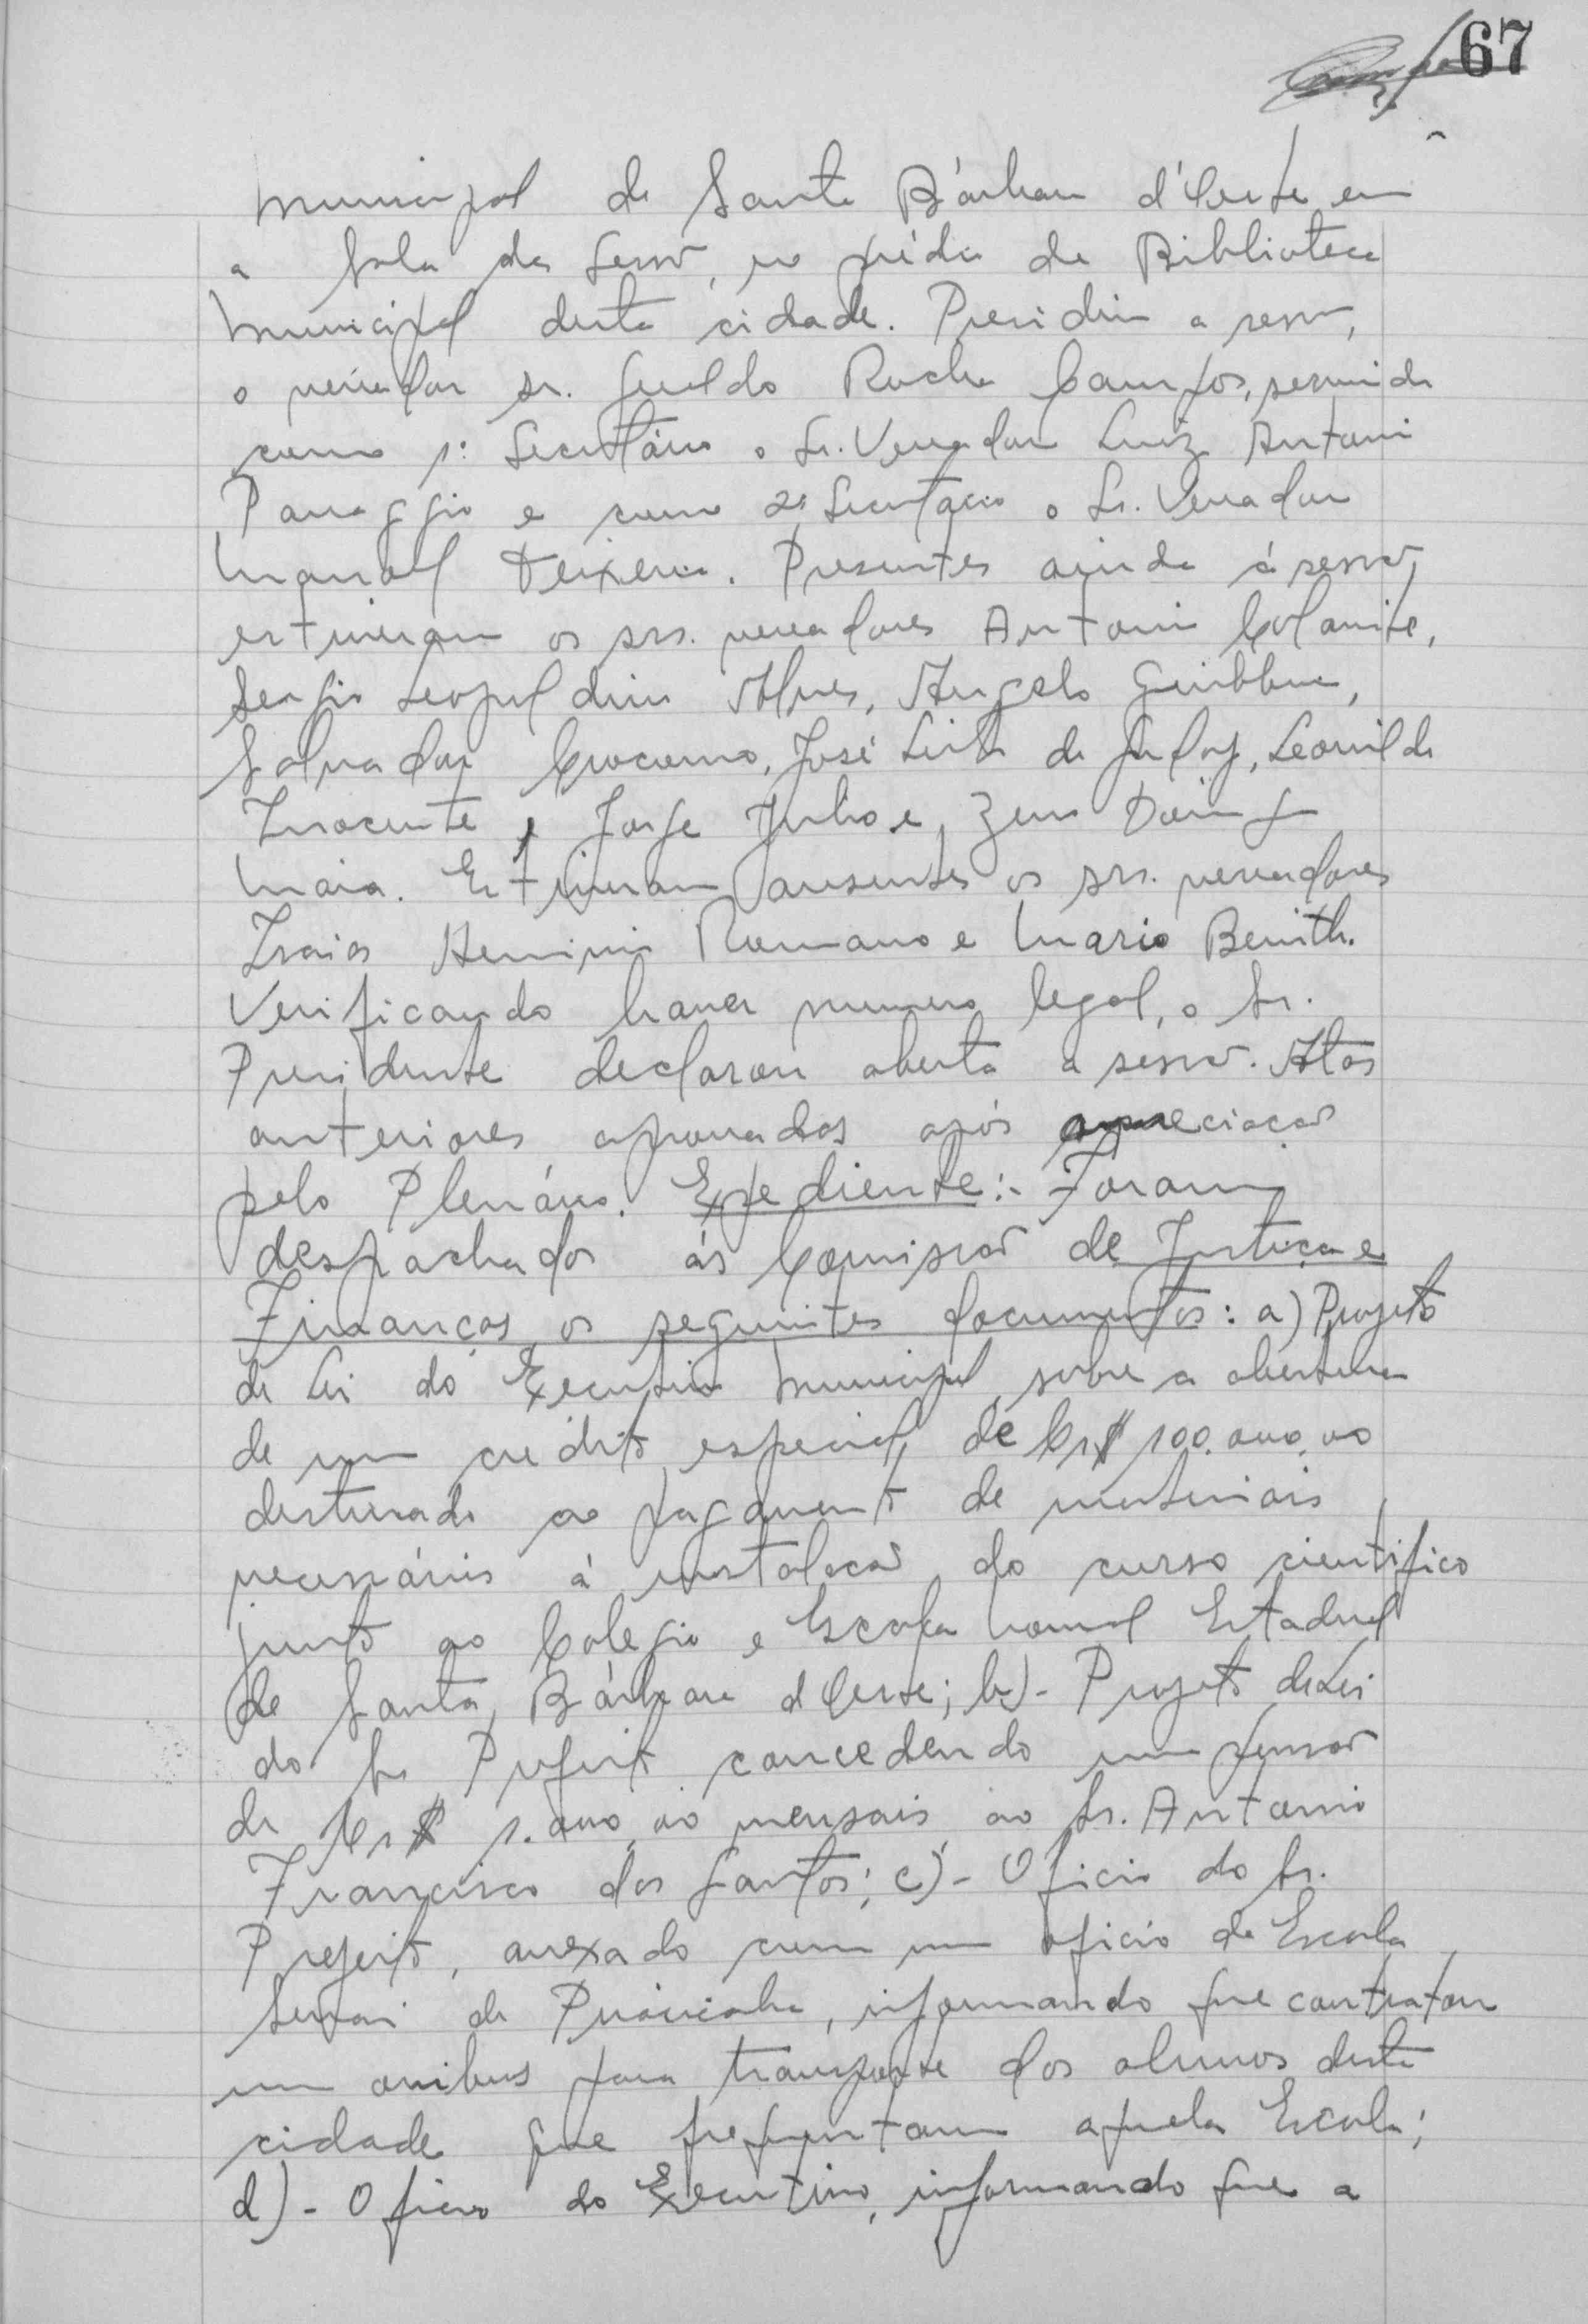 67
Municipal de Santa Bárbara d'Oeste em
a Sala das Sessõ, no prédio da Biblioteca
Municipal desta cidade. Presidiu a sessão,
o vereador sr. Geraldo Rocha Campos, servindo
como 1º Secretário o Sr. Vereador Luiz Antonio
Panaggio e como 2º Secretário o Sr. Vereador
Manoel Teixeira. Presentes ainda á sessão,
estiveram os srs. vereadores Antonio
Sergio Leopoldino Alves, Angelo Giubbina,
Salvador Crocomo, José Leite de Godoy, Leonildo
Inocente, Jorge Julio e, Zeno
Maia. Estiveram ausentes os srs. vereadores
Isaias Herminio Romano e Mario Benith.
Verificando haver numero legal, o Sr.
Presidente declarou aberta a sessão. Atas
anteriores aprovadas após apreciação
pelo Plenário. Expediente:- Foram
despachados ás Comissão de Justiça e
Finanças os seguintes documentos: a) Projeto
de Lei do Executivo Municipal, sobre a abertura
de um crédito especial de Cr$ 100.000,00
destinado ao pagamento de materiais
necessários á instalação do curso cientifico
junto ao Colégio e Escola Normal Estadual
de Santa Bárbara d'Oeste; b)- Projeto de Lei
do Sr. Prefeito concedendo um pensão
de Cr$ 1.000,00 mensais ao Sr. Antonio
Francisco dos Santos; c)- Oficio do Sr.
Prefeito, anexado com um oficio da Escola
Senai de Piracicaba, informando que contratou
um onibus para transporte dos alunos desta
cidade que frequentam aquela Escola;
d)- Oficio do Executivo, informando que a